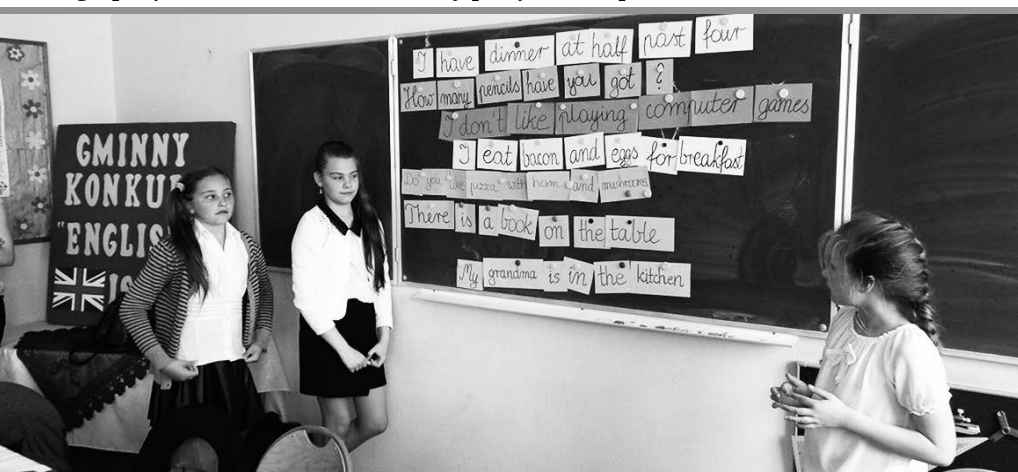 GMINNY
KONKU
"ENGLIS
IS
I have dinner at half past four
How many pencils have you got ?
I don't like playing computer games
I eat bacon and eggs for breakfast
Do you like pizza with ham and mushrooms
There is a book on the table
My grandma is in the kitchen